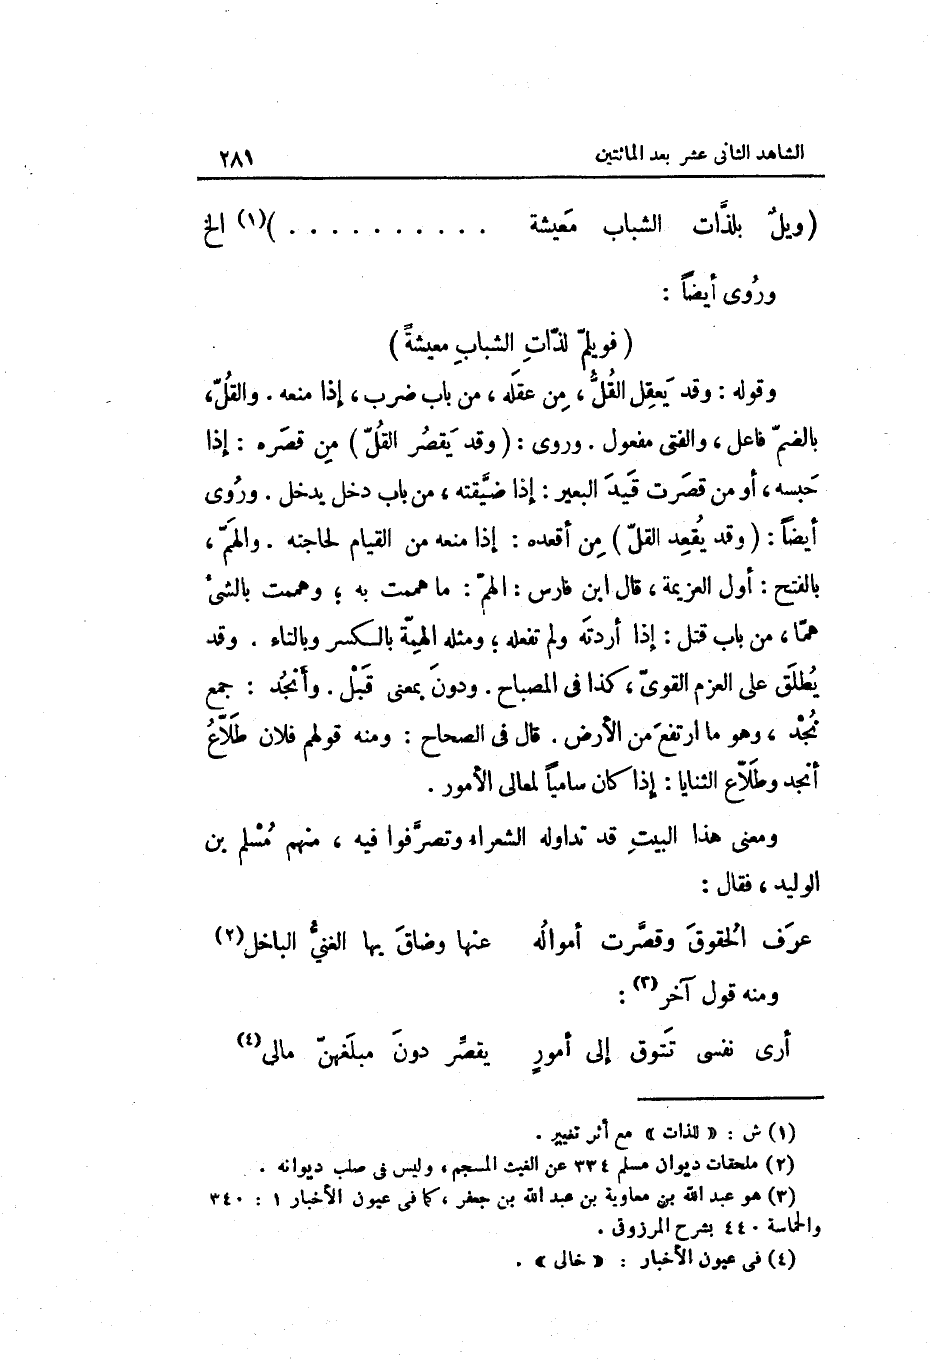 الشاهد الثانى عشر بعد المائتين ٢٨١
(ويلٌ بلذَّات الشباب مَعيشة . . . . . . . . . . )(١) الخ
ورُوى أيضاً :
( فويلمّ لذّاتِ الشبابِ معيشةً )
وقوله : وقد يَعقِل القُلُّ ، مِن عقلَه ، من باب ضرب ، إذا منعه . والقُلّ ،
بالضمّ فاعل ، والفتى مفعول . وروى : ( وقد يَقصُر القُلّ ) مِن قصَره : إذا
حَبسه ، أو من قصَرت قَيدَ البعير : إذا ضيَّقته ، من باب دخل يدخل . ورُوى
أيضاً : ( وقد يُقعِد القلّ ) مِن أقعده : إذا منعه من القيام لحاجته . والهَمّ ،
بالفتح : أول العزيمة ، قال ابن فارس : الهمّ : ما هممت به ؛ وهممت بالشىْ
همّا ، من باب قتل : إذا أردتَه ولم تفعله ؛ ومثله الهِمّة بالكسر وبالتاء . وقد
يُطلَق على العزم القوىّ ، كذا فى المصباح . ودونَ بمعنى قَبْل . وأَنجُد : جمع
نُجْد ، وهو ما ارتفعَ من الأرض . قال فى الصحاح : ومنه قولهم فلان طَلّاعُ
أنجد وطَلّاع الثنايا : إذا كان سامياً لمعالى الأمور .
ومعنى هذا البيتِ قد تداوله الشعراء وتصرَّفوا فيه ، منهم مُسْلم بن
الوليد ، فقال :
عرَف الحُقوقَ وقصَّرت أموالُه عنها وضاقَ بها الغنىُّ الباخل(٢)
ومنه قول آخر(٣) :
أرى نفسى تَتوق إلى أمورٍ يقصِّر دونَ مبلَغهنّ مالى(٤)
(١) ش : « للذات » مع أثر تغيير .
(٢) ملحقات ديوان مسلم ٣٣٤ عن الغيث المسجم ، وليس فى صلب ديوانه .
(٣) هو عبد الله بن معاوية بن عبد الله بن جعفر ، كما فى عيون الأخبار ١ : ٣٤٠
والحماسة ٤٤٠ بشرح المرزوقى .
(٤) فى عيون الأخبار : « خالى » .